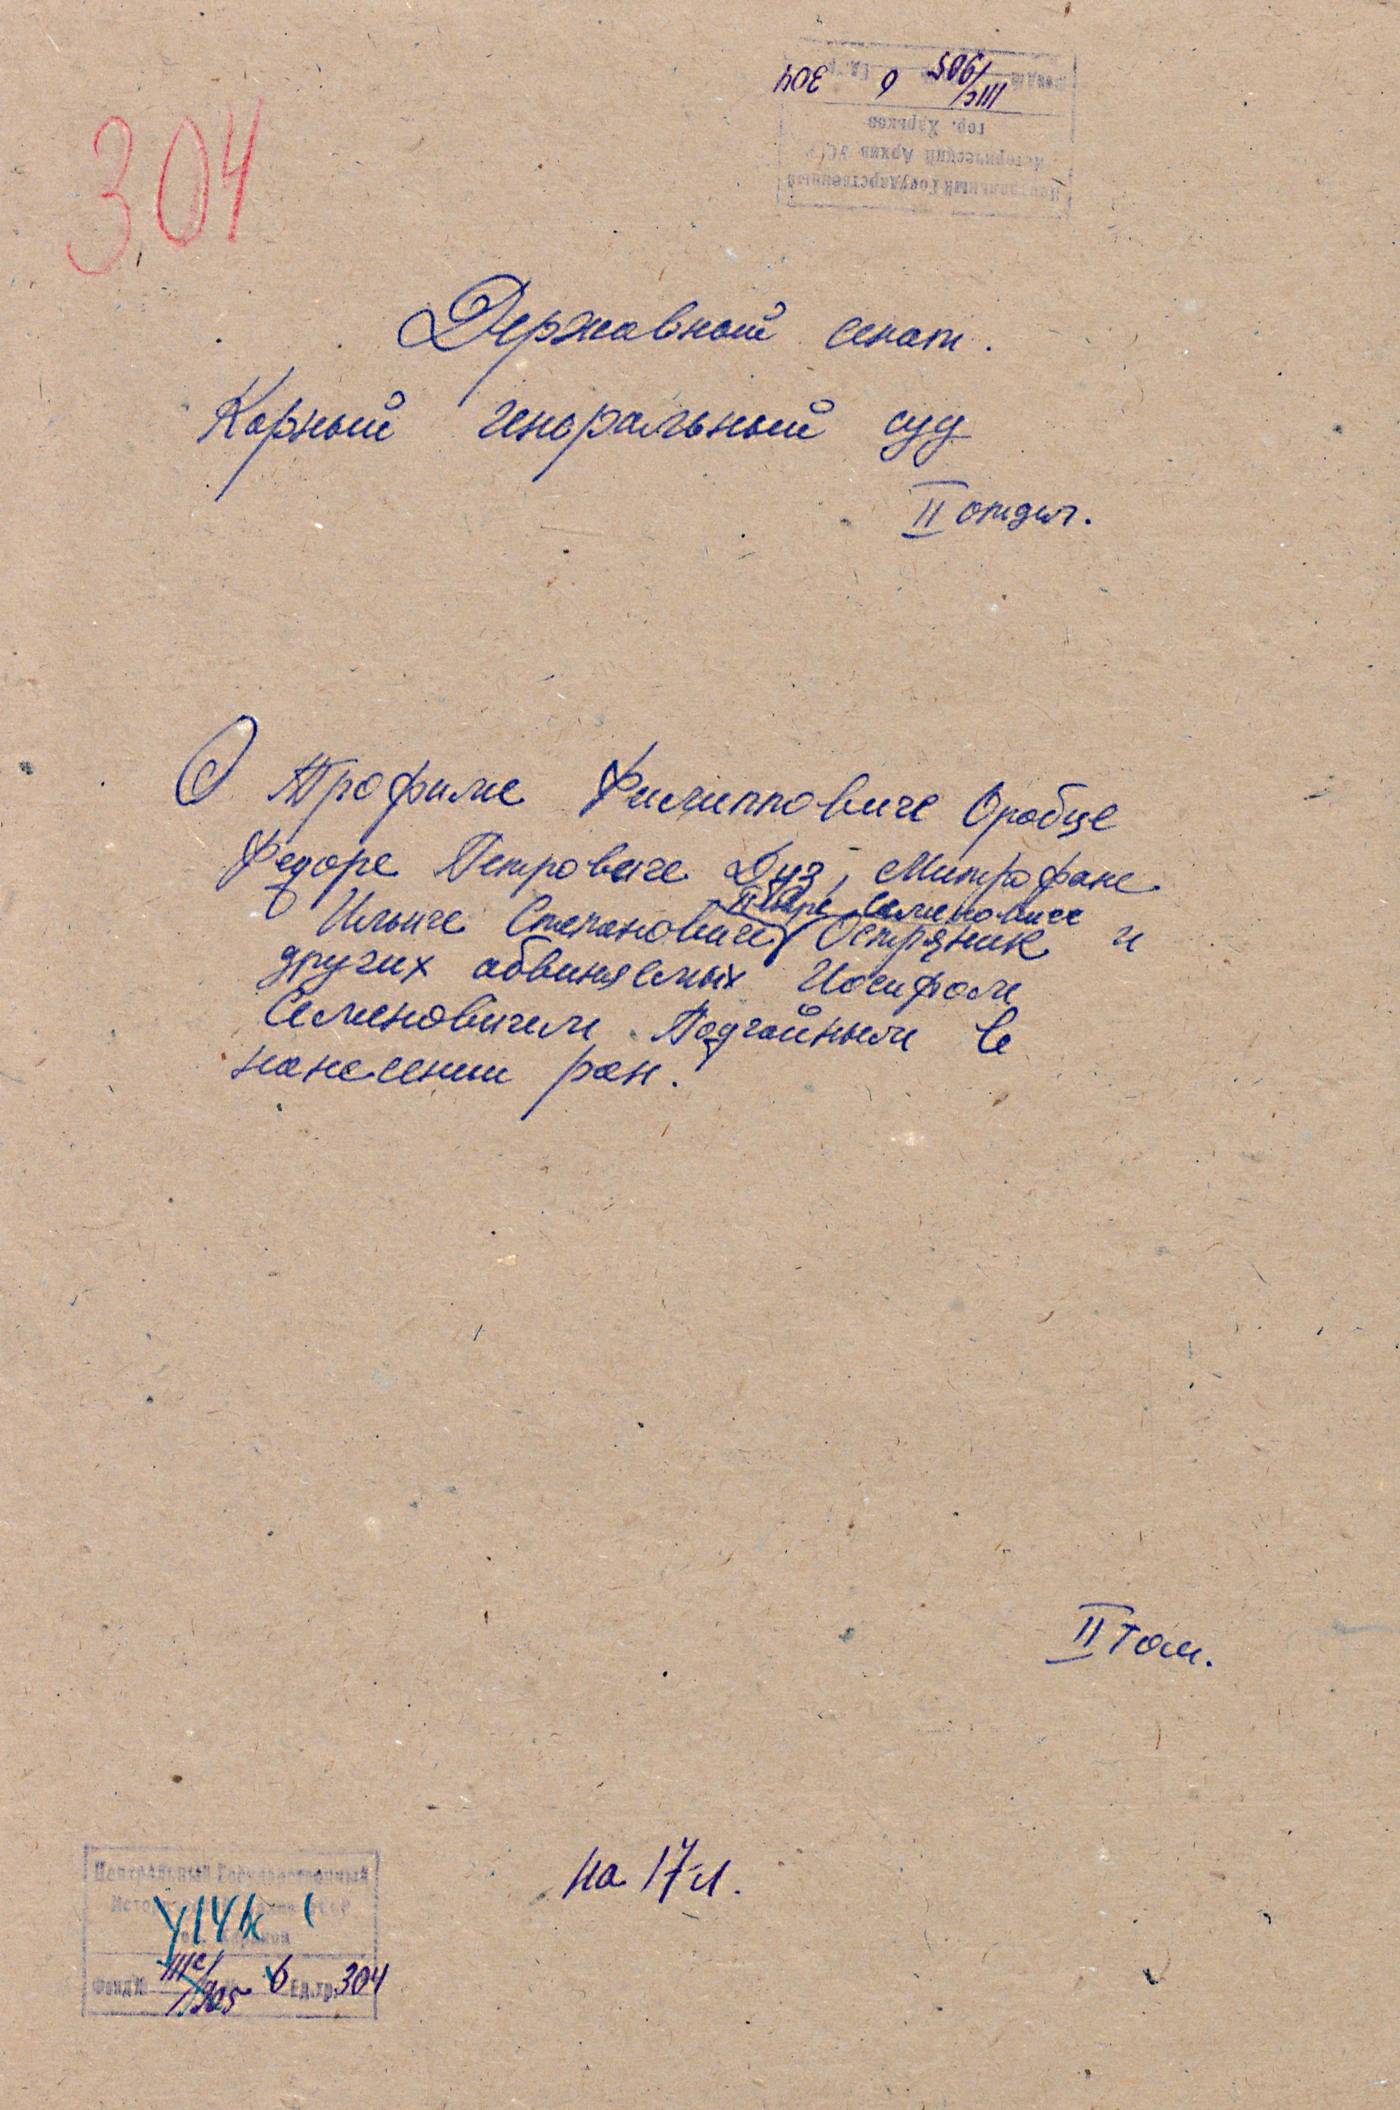 304
Центральный Государственный
Исторический Архив УССР
гор. Харьков
Фонд № 1115с/1905 6 Ед. хр. 304
Державный сенат.
Карный генеральный суд
II отдел.
О Трофиме Филипповиче Оробце
Федоре Петровиче Дуз, Митрофане
Ильиче Степановиче, Семеновиче Остряник и
других обвиняемых Иосифом
Семеновичем Подгайным в
нанесении ран.
II том.
на 17 л.
Центральный Государственный
гор. Харьков
Фонд № 6 Ед. хр. 304